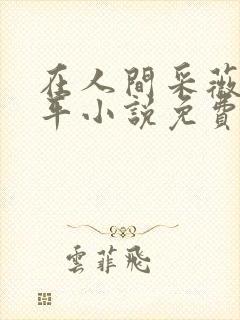 在人間采薇
年小說免費
雲菲飛